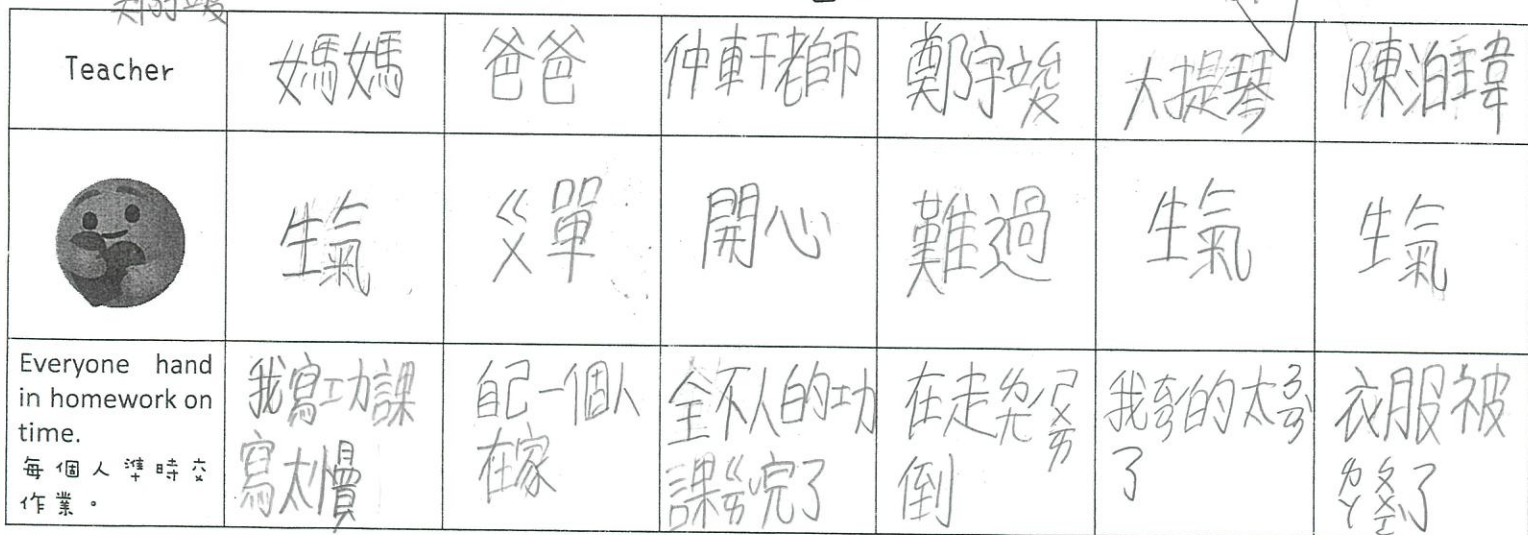 Teacher
媽媽
爸爸
仲軒老師
鄭宇竣
大提琴
陳泊瑋
生氣
ㄍㄨ單
開心
難過
生氣
生氣
Everyone hand
in homework on
time.
每個人準時交
作業。
我寫功課
寫太慢
自己一個人
在家
全不人的功
課完了
在走
倒
我的太
了
衣服被
了